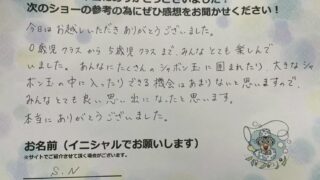 次のショーの参考の為にぜひ感想をお聞かせください!
今日はお越しいただきありがとうございました。
0歳児クラスから5歳児クラスまで、みんなとても楽しんで
いました。あんなにたくさんのシャボン玉に囲まれたり、大きなシャ
ボン玉の中に入ったりできる機会はあまりないと思いますので、
みんなとても良い思い出になったと思います。
本当にありがとうございました。
お名前(イニシャルでお願いします)
※サイトでご紹介させて頂く場合がございます。
S.N